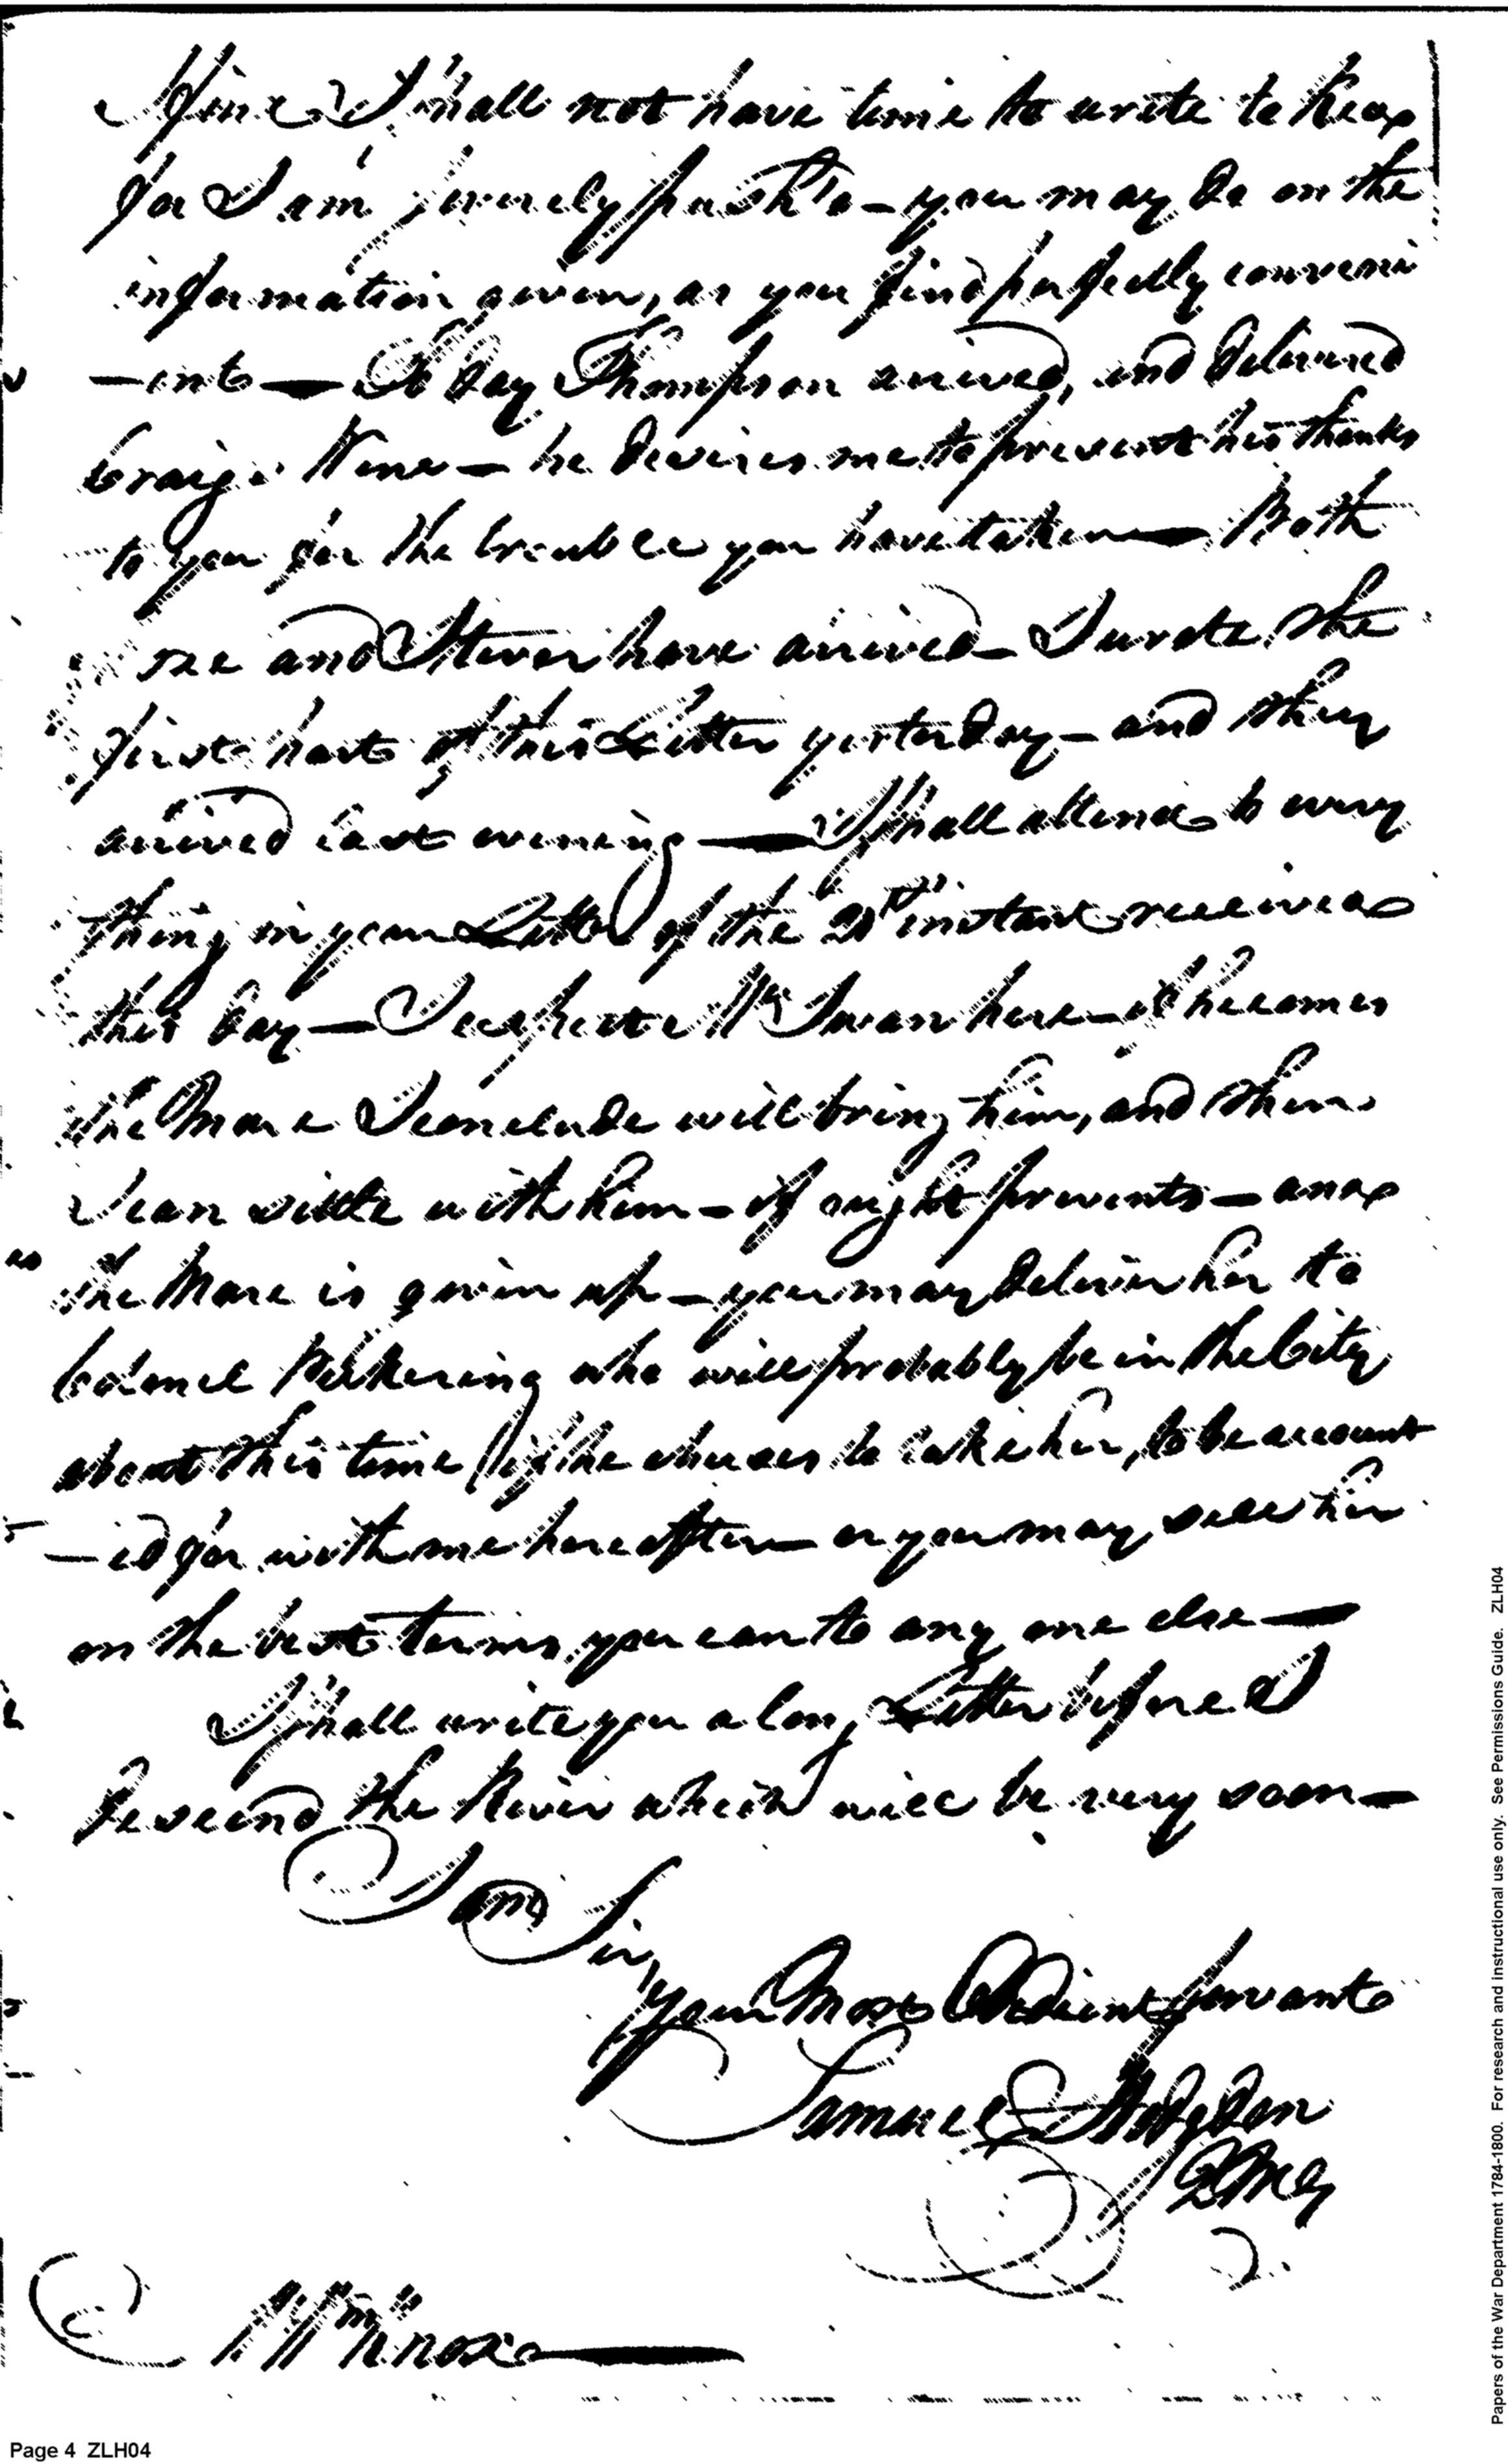 I shall not have time to write to
for I am severely push'd – you may do on the
information given, as you find perfectly conveni
– ent – To day Thompson arrived, and delivered
Craigs Wine – he desires me to present his thanks
to you for the trouble you have taken – Both
and have arrived – I wrote the
first part of this Letter yesterday – and they
arrived last evening – I shall attend to every
thing in your Letter of the instant received
this day – I expect Mr Swan here – if he comes
the Mare I conclude will bring him, and then
I can settle with him – if ought prevents – and
the Mare is given up – you may deliver her to
Colonel Pickering who will probably be in the City
about this time if he chuses to take her, to be account
– ed for with me hereafter – or you may sell her
on the best terms you can to any one else –
I shall write you a long Letter before I
descend the River which will be very soon –
I am Sir,
your Most Obedient servant
Samuel Hodgdon
QMG
Mr Wm Knox
Page 4 ZLH04
Papers of the War Department 1784-1800. For research and instructional use only. See Permissions Guide. ZLH04